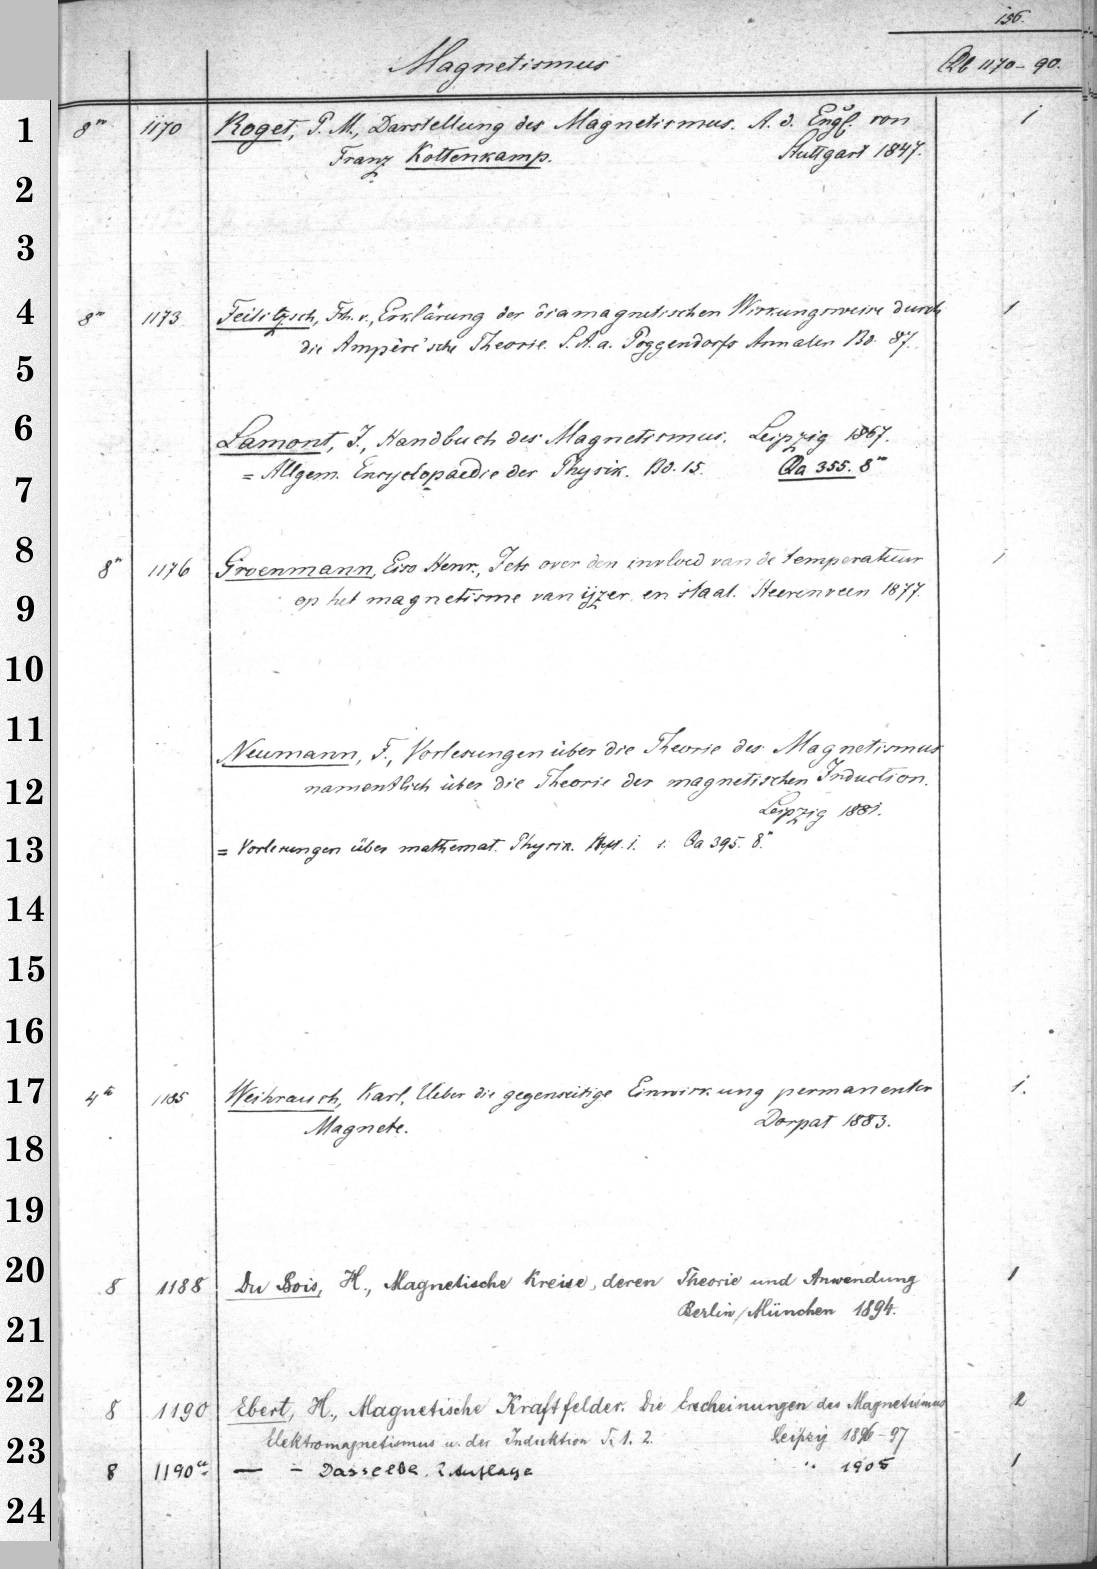 156.
Magnetismus
Qb 1170-90.
1
8°° 1170 Roget, P. M., Darstellung des Magnetismus. A. d. Engl. von 1
Franz Kottenkamp. Stuttgart 1847.
2
3
4
8°° 1173 Feilitzsch, Frh. v., Erklärung der diamagnetischen Wirkungsweise durch 1
die Ampère'sche Theorie. S. A. a. Poggendorfs Annalen Bd. 87.
5
6
Lamont, J., Handbuch des Magnetismus. Leipzig 1867.
= Allgem. Encyclopaedie der Physik. Bd. 15. Qa 355. 8°°
7
8
8°° 1176 Groenmann, Eiso Henr., Iets over den invloed van de temperatuur 1
op het magnetisme van ijzer en staal. Heerenveen 1877.
9
10
11
Neumann, F., Vorlesungen über die Theorie des Magnetismus
namentlich über die Theorie der magnetischen Induction.
12
Leipzig 1881.
13
= Vorlesungen über mathemat. Physik. 1. Qa 395. 8°°
14
15
16
17
4to 1185 Weihrauch, Karl, Ueber die gegenseitige Einwirkung permanenter 1.
Magnete. Dorpat 1883.
18
19
20
8 1188 Du Bois, H., Magnetische Kreise, deren Theorie und Anwendung 1
Berlin/München 1894.
21
22
8 1190 Ebert, H., Magnetische Kraftfelder. Die Erscheinungen des Magnetismus 2
Elektromagnetismus u. der Induktion T. 1. 2. Leipzig 1896-97
23
8 1190a — – Dasselbe. 2 Auflage " 1905 1
24